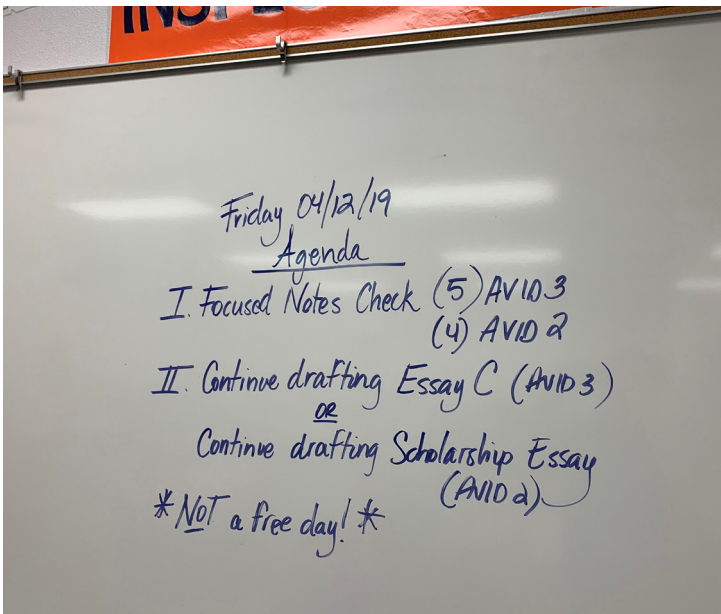 Friday 04/12/19
Agenda
I. Focused Notes Check (5) AVID 3
(4) AVID 2
II. Continue drafting Essay C (AVID 3)
OR
Continue drafting Scholarship Essay
(AVID 2)
*NOT a free day!*